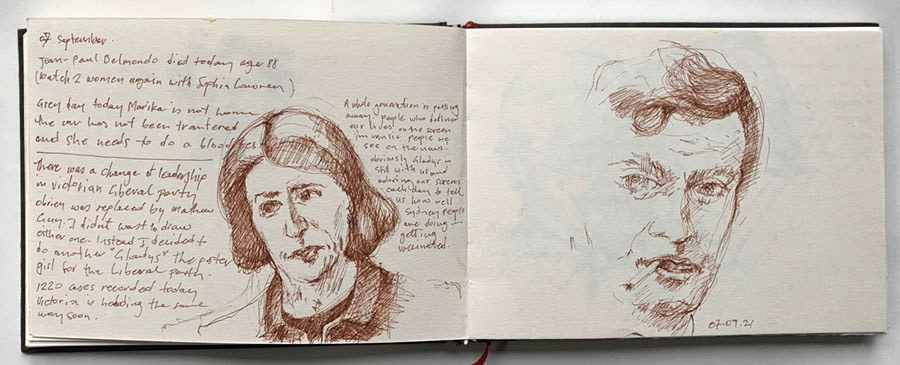 07 September.
Jean-Paul Belmondo died today age 88
(watch 2 women again with Sophia Lauren)
Grey day today Marika is not home
the car has not been trantered
and she needs to do a blood
There was a change of leadership
in Victorian Liberal party
obrien was replaced by mathew
Guy. I didnt want to draw
either one. Instead I decided to
do another "Gladys" the poster
girl for the Liberal party.
1220 cases recorded today
Victoria is heading the same
way soon.
A whole generation is passing
away, people who defined
our lives on the screen
in music people we
see on the news.
obviously Gladys is
still with us and
adoring our screens
each day to tell
us how well
Sydney people
are doing
getting
vaccinated.
07.09.21